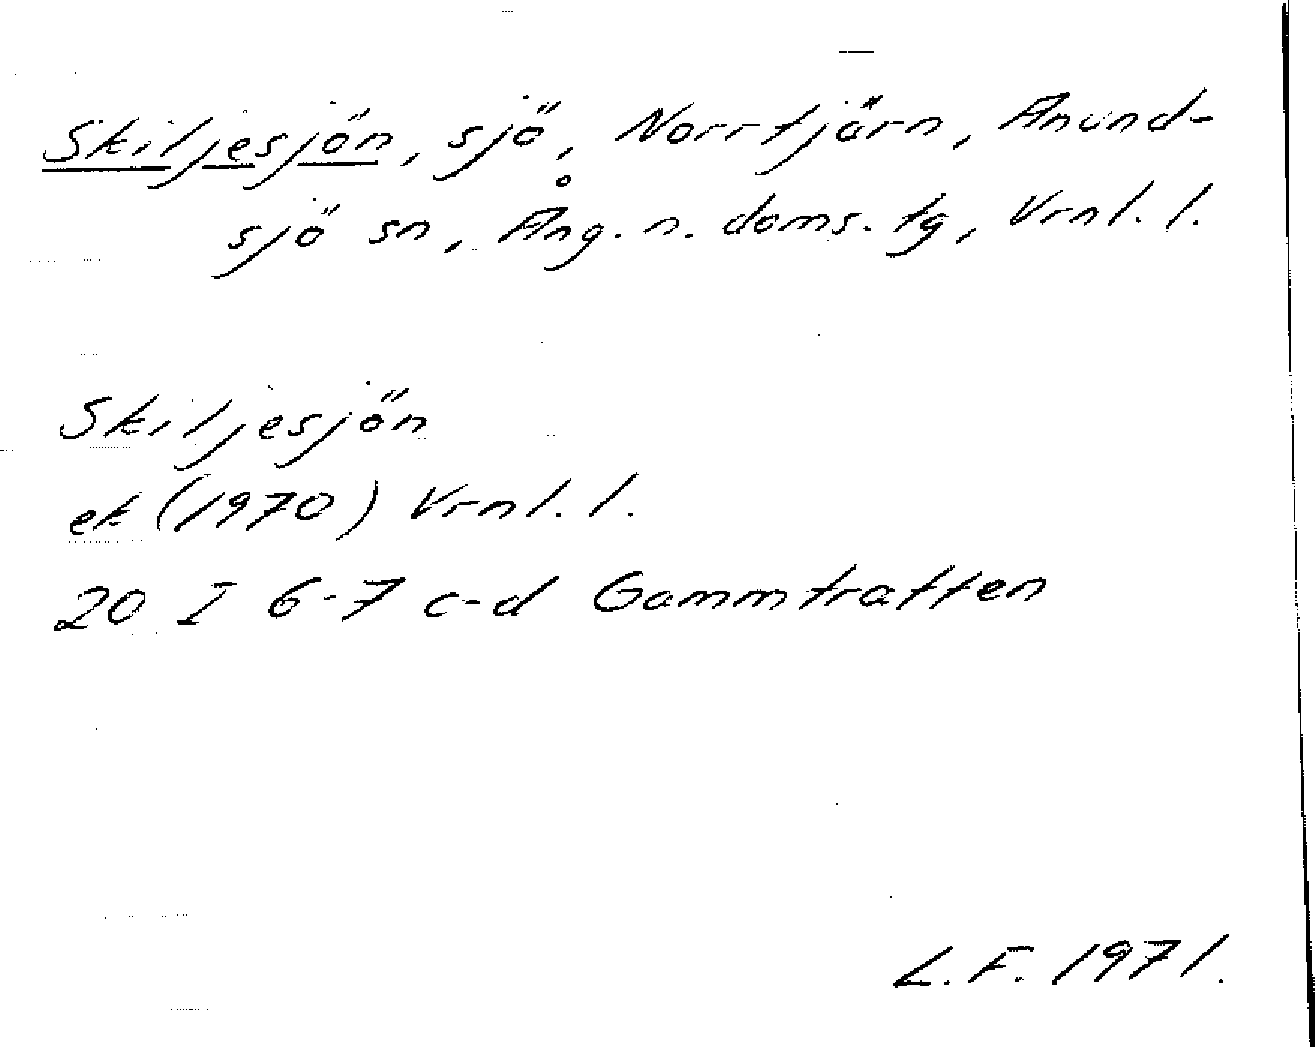 Skiljesjön, sjö, Norrtjärn, Anund-
sjö sn, Ång. n. doms. tg, Vrnl. l.
Skiljesjön
ek (1970) Vrnl. l.
20 I 6-7 c-d Gammtratten
L. F. 1971.